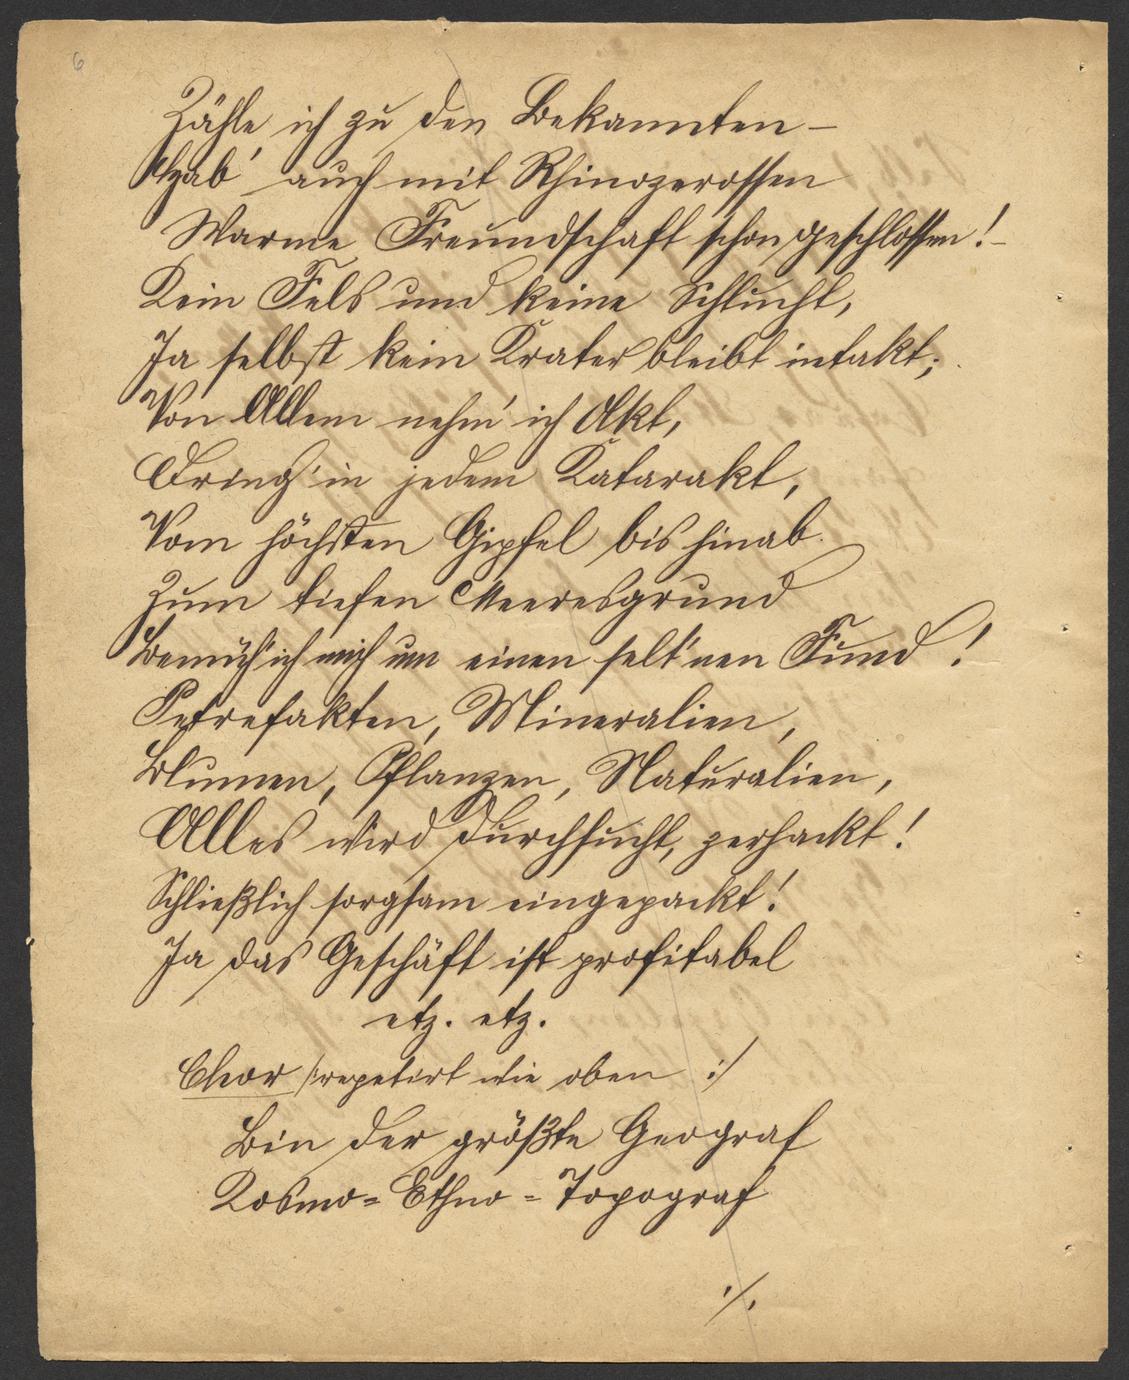 6
Zähle ich zu den Bekannten –
Hab' auch mit Rhinozerossen
Warme Freundschaft schon geschlossen! –
Kein Fels und keine Schlucht,
Ja selbst kein Krater bleibt intakt;
Von Allem nehm' ich Akt,
Dring' in jedem Katarakt,
Vom höchsten Gipfel bis hinab
Zum tiefen Meeresgrund
Bemüh' ich mich um einen selt'nen Fund!
Petrefakten, Mineralien,
Blumen, Pflanzen, Naturalien,
Alles wird durchsucht, zerhackt!
Schließlich sorgsam eingepackt!
Ja das Geschäft ist profitabel
etz. etz.
Chor /: repetirt wie oben :/
Bin der größte Geograf
Kosmo= Ethno = Topograf
./.